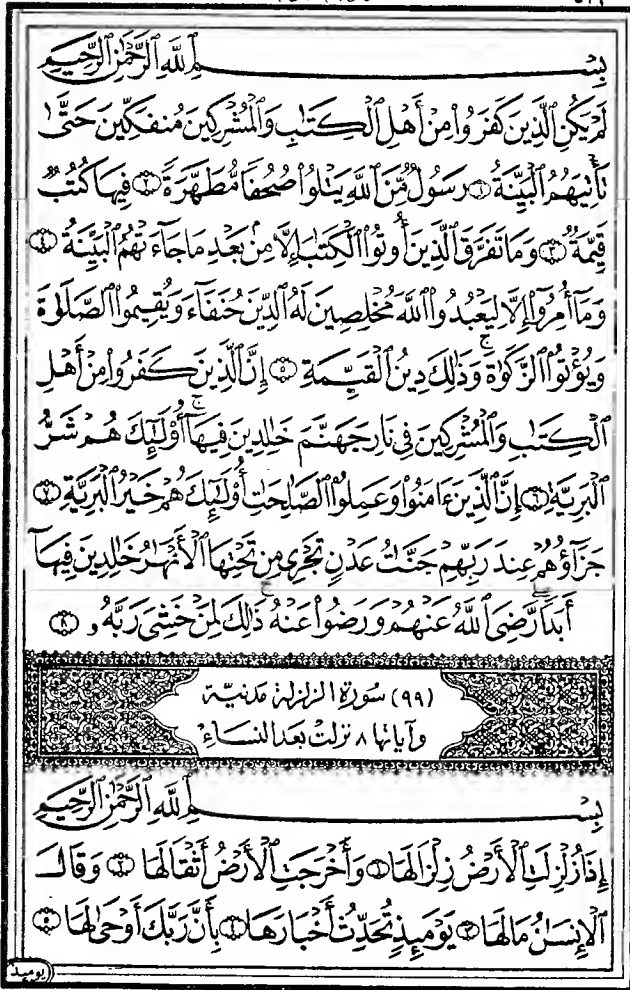 بِسْمِ ٱللَّهِ ٱلرَّحْمَٰنِ ٱلرَّحِيمِ
لَمْ يَكُنِ ٱلَّذِينَ كَفَرُوا۟ مِنْ أَهْلِ ٱلْكِتَٰبِ وَٱلْمُشْرِكِينَ مُنفَكِّينَ حَتَّىٰ
تَأْتِيَهُمُ ٱلْبَيِّنَةُ ١ رَسُولٌ مِّنَ ٱللَّهِ يَتْلُوا۟ صُحُفًا مُّطَهَّرَةً ٢ فِيهَا كُتُبٌ
قَيِّمَةٌ ٣ وَمَا تَفَرَّقَ ٱلَّذِينَ أُوتُوا۟ ٱلْكِتَٰبَ إِلَّا مِنۢ بَعْدِ مَا جَآءَتْهُمُ ٱلْبَيِّنَةُ ٤
وَمَآ أُمِرُوٓا۟ إِلَّا لِيَعْبُدُوا۟ ٱللَّهَ مُخْلِصِينَ لَهُ ٱلدِّينَ حُنَفَآءَ وَيُقِيمُوا۟ ٱلصَّلَوٰةَ
وَيُؤْتُوا۟ ٱلزَّكَوٰةَ ۚ وَذَٰلِكَ دِينُ ٱلْقَيِّمَةِ ٥ إِنَّ ٱلَّذِينَ كَفَرُوا۟ مِنْ أَهْلِ
ٱلْكِتَٰبِ وَٱلْمُشْرِكِينَ فِى نَارِ جَهَنَّمَ خَٰلِدِينَ فِيهَآ ۚ أُو۟لَٰٓئِكَ هُمْ شَرُّ
ٱلْبَرِيَّةِ ٦ إِنَّ ٱلَّذِينَ ءَامَنُوا۟ وَعَمِلُوا۟ ٱلصَّٰلِحَٰتِ أُو۟لَٰٓئِكَ هُمْ خَيْرُ ٱلْبَرِيَّةِ ٧
جَزَآؤُهُمْ عِندَ رَبِّهِمْ جَنَّٰتُ عَدْنٍ تَجْرِى مِن تَحْتِهَا ٱلْأَنْهَٰرُ خَٰلِدِينَ فِيهَآ
أَبَدًا ۖ رَّضِىَ ٱللَّهُ عَنْهُمْ وَرَضُوا۟ عَنْهُ ۚ ذَٰلِكَ لِمَنْ خَشِىَ رَبَّهُۥ ٨
(٩٩) سُورَة الزلزلة مَدنيّة
وآياتها ٨ نزلت بعد النساء
بِسْمِ ٱللَّهِ ٱلرَّحْمَٰنِ ٱلرَّحِيمِ
إِذَا زُلْزِلَتِ ٱلْأَرْضُ زِلْزَالَهَا ١ وَأَخْرَجَتِ ٱلْأَرْضُ أَثْقَالَهَا ٢ وَقَالَ
ٱلْإِنسَٰنُ مَا لَهَا ٣ يَوْمَئِذٍ تُحَدِّثُ أَخْبَارَهَا ٤ بِأَنَّ رَبَّكَ أَوْحَىٰ لَهَا ٥
يوميذ